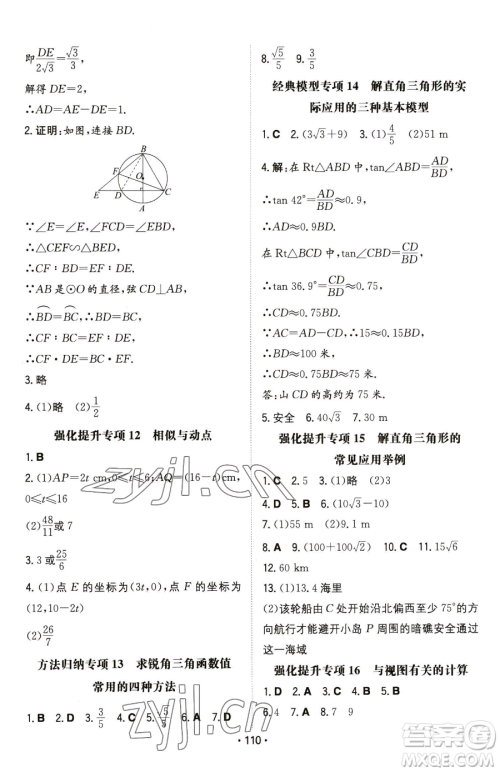 即DE/2√3=√3/3,
解得 DE=2,
∴AD=AE-DE=1.
2.证明:如图,连接 BD.
B
F
O
E D C
A
∵∠E=∠E,∠FCD=∠EBD,
∴△CEF∽△BED,
∴CF∶BD=EF∶DE.
∵AB是⊙O的直径,弦CD⊥AB,
∴⌒BD=⌒BC,∴BD=BC,
∴CF∶BC=EF∶DE,
∴CF·DE=BC·EF.
3.略
4.(1)略 (2)1/2
强化提升专项 12 相似与动点
1.B
2.(1)AP=2t cm,0≤t≤6,AQ=(16-t)cm,
0≤t≤16
(2)48/11或7
3.3或25/6
4.(1)点E的坐标为(3t,0),点F的坐标为
(12,10-2t)
(2)26/7
方法归纳专项 13 求锐角三角函数值
常用的四种方法
1.B 2.D 3.3/5 4.C 5.√5/5 6.D 7.A
8.√5/5 9.3/5
经典模型专项 14 解直角三角形的实
际应用的三种基本模型
1.C 2.(3√3+9) 3.(1)4/5 (2)51 m
4.解:在 Rt△ABD 中,tan∠ABD=AD/BD,
∴tan 42°=AD/BD≈0.9,
∴AD≈0.9BD.
在 Rt△BCD 中,tan∠CBD=CD/BD,
∴tan 36.9°=CD/BD≈0.75,
∴CD≈0.75BD.
∵AC=AD-CD,
∴15=0.15BD,
∴BD=100 米,
∴CD≈0.75BD=75 米.
答:山 CD 的高约为 75 米.
5.安全 6.40√3 7.30 m
强化提升专项 15 解直角三角形的
常见应用举例
1.C 2.5 3.(1)略 (2)24
4.D 5.D 6.(10√3-10)
7.(1)55 m (2)9.1 m
8.A 9.(100+100√2) 10.C 11.15√6
12.60 km
13.(1)13.4 海里
(2)该轮船由 C 处开始沿北偏西75°的方
向航行才能避开小岛 P 周围的暗礁安全通过
这一海域
强化提升专项 16 与视图有关的计算
1.B 2.D 3.B 4.B 5.A
6.4 7.A 8.7 9
· 110 ·
zyjl.cn
zyjl.cn